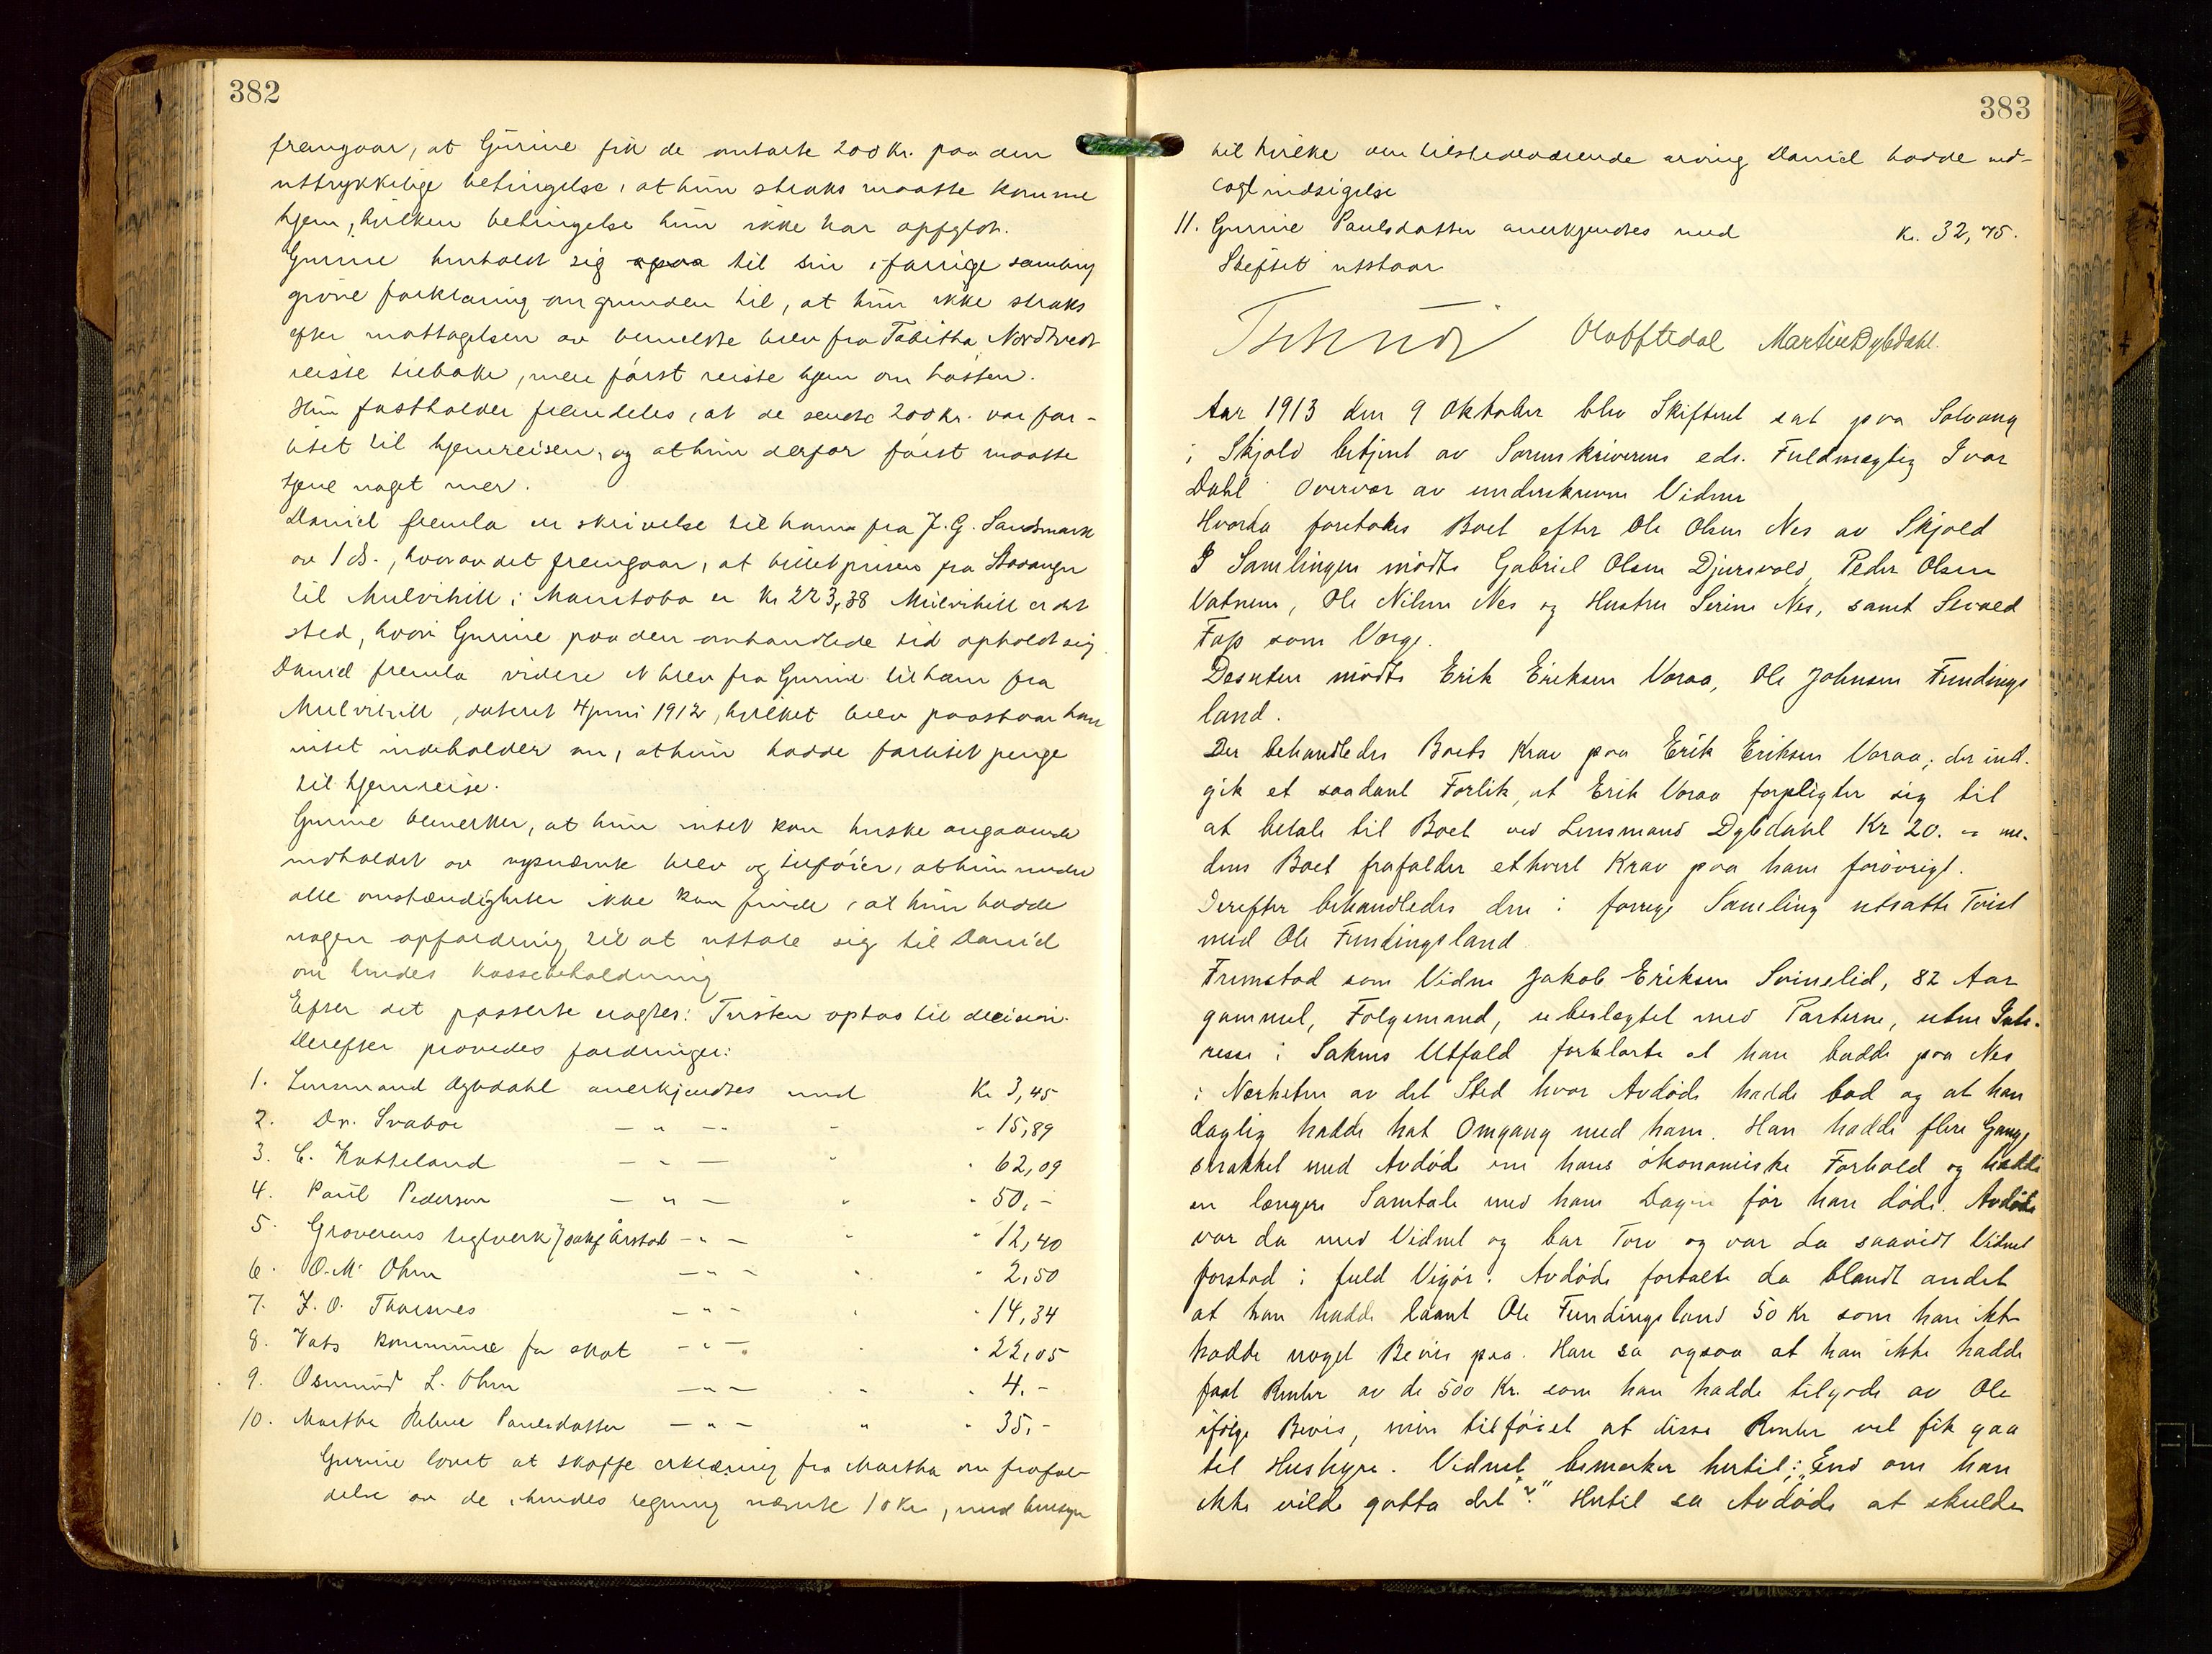 382
fremgaar, at Gurine fik de omtalte 200 Kr. paa den
uttrykkelige betingelse, at hun straks maatte komme
hjem, hvilken betingelse hun ikke har opfyldt.
Gurine henholdt sig ogsaa til sin i forrige samling
givne forklaring om grunden til, at hun ikke straks
efter mottagelsen av bemeldte brev fra Tabitha Nordtvedt
reiste tilbake, men først reiste hjem om høsten.
Hun fastholder fremdeles, at de sendte 200 Kr. var for-
litet til hjemreisen, og at hun derfor først maatte
tjene noget mer.
Daniel fremla en skrivelse til ham fra J. G. Sandsmark
av 1 ds., hvorav det fremgaar, at billetprisen fra Stavanger
til Mulvihill i Manitoba er Kr 223,38 Mulvihill er det
sted, hvor Gurine paa den omhandlede tid opholdt sig.
Daniel fremla videre et brev fra Gurine til ham fra
Mulvihill, dateret 4 juni 1912, hvilket brev paastaar han
intet indeholder om, at hun hadde forlitet penge
til hjemreise.
Gurine bemerker, at hun intet kan huske angaaende
indholdet av nysnævnte brev og tilføier, at hun under
alle omstændigheter ikke kan finde, at hun hadde
nogen opfordring til at uttale sig til Daniel
om hendes kassebeholdning
Efter det passerte eragtes: Tvisten optas til decision.
Derefter prøvedes fordringer:
1. Lensmand Dybdahl anerkjendtes med Kr 3,45
2. Dr. Svaboe — " — " " 15,89
3. C. Katteland — " — " " 62,09
4. Paul Pedersen — " — " " 50,-
5. Groverens teglverk / sakf Årstad — " — " " 12,40
6. O. M. Ohm — " — " " 2,50
7. J. O. Thorsnes — " — " " 14,34
8. Vats kommune for skat — " — " " 22,05
9. Osmund L. Ohm — " — " " 4.-
10. Marthe Paulsdatter — " — " " 35,-
Gurine lovet at skaffe erklæring fra Martha om frafal-
delse av de i hendes regning nævnte 10 Kr, med hensyn
383
til hvilke den tilstedeværende arving Daniel hadde ned-
lagt indsigelse
11. Gurine Paulsdatter anerkjendtes med Kr. 32,75.
Skiftet utstaar
Ola Oftedal Martin Dybdahl.
Aar 1913 den 9 Oktober blev Skifteret sat paa Solvang
i Skjold betjent av Sorenskriverens eds. Fuldmægtig Ivar
Dahl Overvær av underskrevne Vidner
Hvorda foretokes Boet efter Ole Olsen Nes av Skjold
I Samlingen mødte Gabriel Olsen Djursvold, Peder Olsen
Vatnem, Ole Nilsen Nes og Hustru Serine Nes, samt Sivald
Fosp som Verge.
Desuten mødte Erik Eriksen Voraa, Ole Johnsen Fundings
land.
Der behandledes Boets Krav paa Erik Eriksen Voraa; der ind-
gik et saadant Forlik, at Erik Voraa forpligter sig til
at betale til Boet ved Lensmand Dybdahl Kr 20. - me-
dens Boet frafalder ethvert Krav paa ham forøvrigt.
Derefter behandledes den i forrige Samling utsatte Tvist
med Ole Fundingsland
Fremstod som Vidne Jakob Eriksen Svinelid, 82 Aar
gammel, Følgemand, ubeslegtet med Parterne, uten Inte-
resse i Sakens Utfald forklarte at han bodde paa Nes
i Nærheten av det Sted hvor Avdøde hadde bod og at han
daglig hadde hat Omgang med ham. Han hadde flere Gange
snakket med Avdøde om hans økonomiske Forhold og hadde
en længere Samtale med ham Dagen før han døde. Avdøde
var da med Vidnet og bar Torv og var da saavidt Vidnet
forstod i fuld Vigør. Avdøde fortalte da blandt andet
at han hadde laant Ole Fundingsland 50 Kr som han ikke
hadde noget Bevis paa. Han sa ogsaa at han ikke hadde
faat Renter av de 500 Kr. som han hadde tilgode av Ole
ifølge Bevis, men tilføiet at disse Renter vel fik gaa
til Hushyre. Vidnet bemerker hertil: "End om han
ikke vilde godta det?" Hertil sa Avdøde at skulde